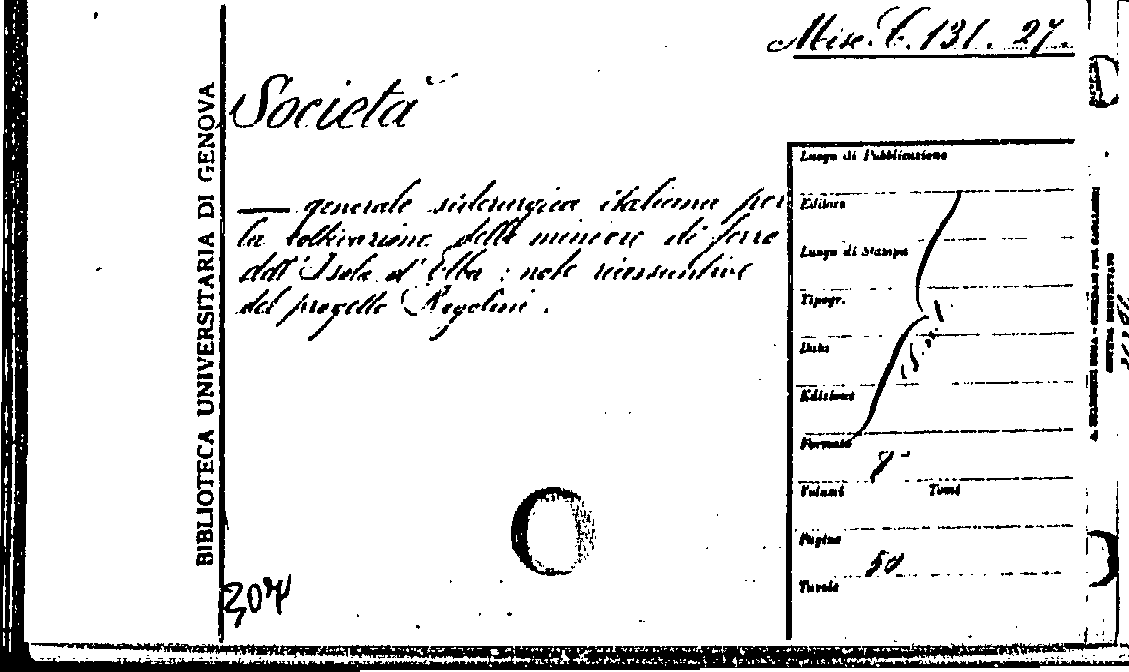 Misc. C. 131. 27.
BIBLIOTECA UNIVERSITARIA DI GENOVA
Società
— generale siderurgica italiana per
la coltivazione delle miniere di ferro
dell'Isola d'Elba : note riassuntive
del progetto Regolini.
Luogo di Pubblicazione
Editore
Luogo di Stampa
Tipogr.
Data
S. n. t.
Edizione
Formato
8°
Volumi Tomi
Pagine
50
Tavole